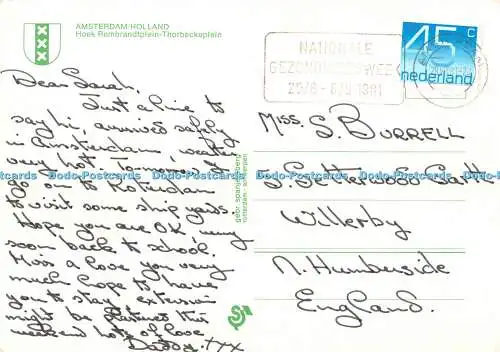 AMSTERDAM/HOLLAND
Hoek Rembrandtplein-Thorbeckeplein
Dear Sarah,
Just a line to
say hi, arrived safely
in Amsterdam weather
very hot. To-morrow I
go on to Rotterdam
to visit some ship yards.
Hope you are OK very
soon back to school.
Miss & love you very
much hope to have
you to stay
might be this
weekend lots of love
Daddy. xxx
gebr. spanjersberg
rotterdam - antwerpen
NATIONALE
GEZONDHEIDSWEEK
45 c
nederland
MISS. S. BURRELL
S. Setterwood Garth
Willerby
N. Humberside
England.
Dodo-Postcards Dodo-Postcards Dodo-Postcards Dodo-Postcards
Dodo-Postcards Dodo-Postcards Dodo-Postcards Dodo-Postcards